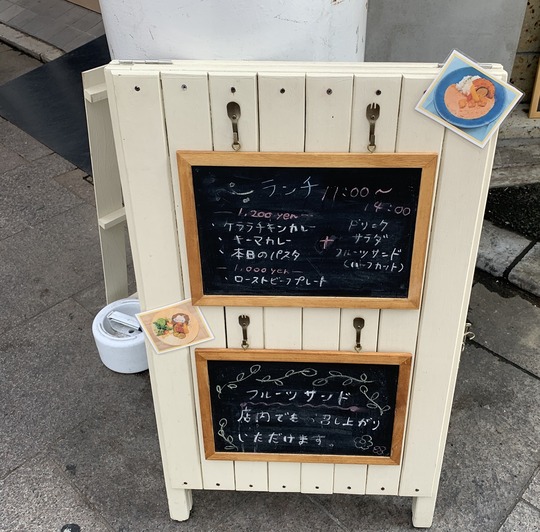 ランチ 11:00〜
14:00
1,200 yen
・ケララチキンカレー
・キーマカレー
・本日のパスタ
+
ドリンク
サラダ
フルーツサンド
(ハーフカット)
1,000 yen
・ローストビーフプレート
フルーツサンド
店内でも 召し上がり
いただけます。